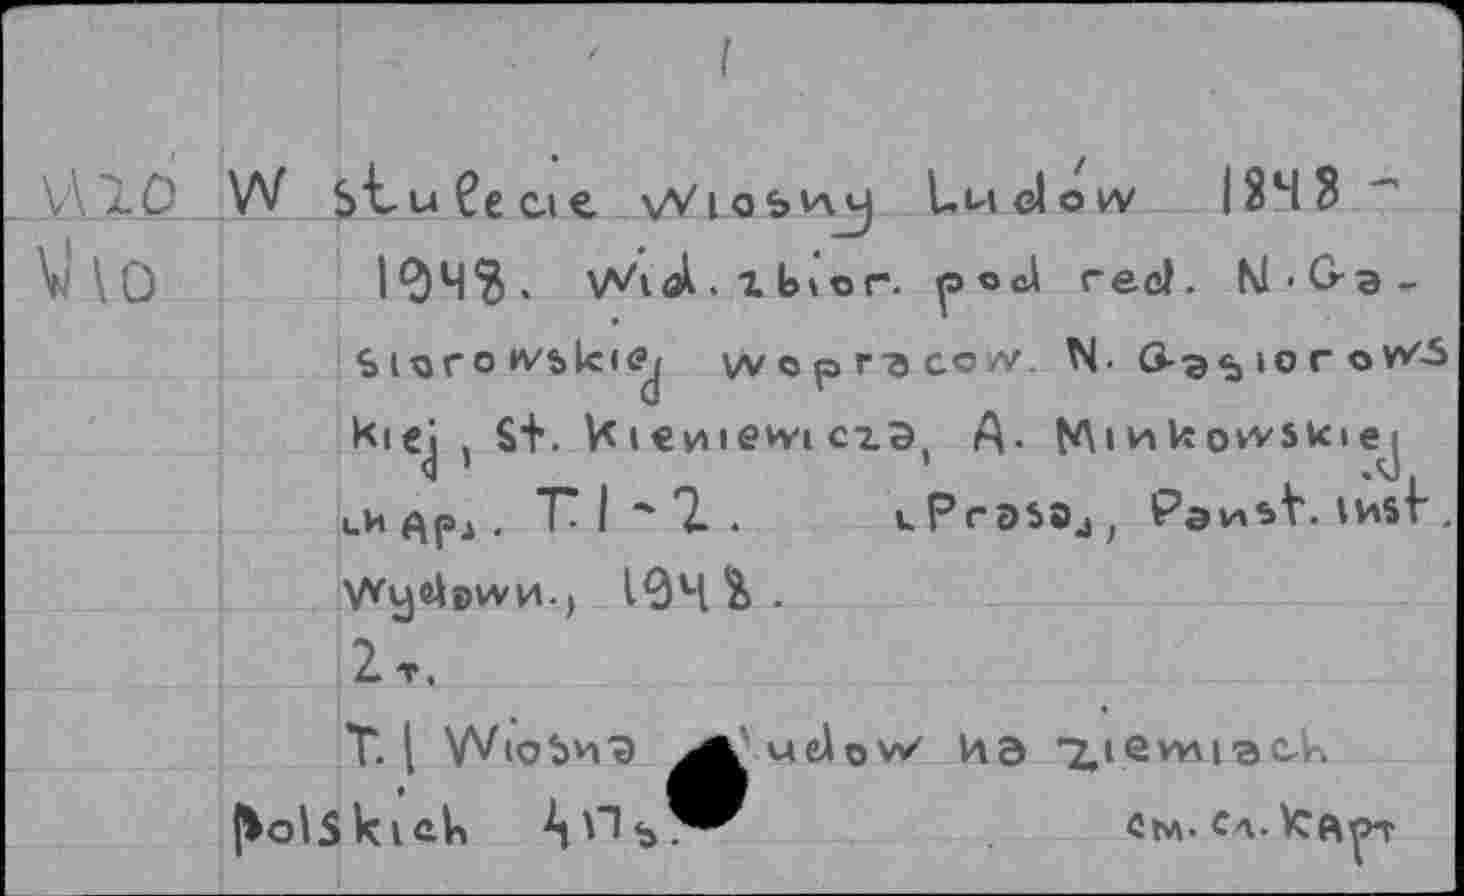 И20 W stulecie wiosny Ludów 1848 -
W10 1948. Wid. zbior. pod red. N. Ga-
siorowskiej w opracow. N. Gasiorows
kiej, St. Kieniewicza, A. Minkowskiej
i др. T. 1 - 2. Prasa, Panst. inst.
Wydawn., 1948.
2 т.
T. 1 Wiosna udow na ziemiach
polskich См. сл. карт